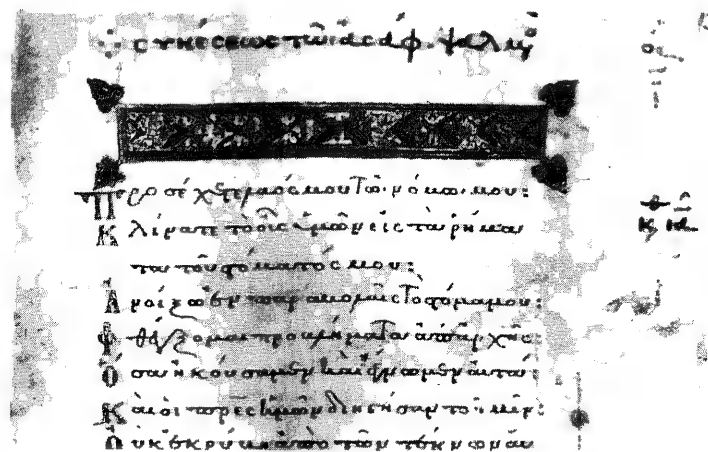 συνέσεως τῶ ἀσάφ. ψαλμὸ
Προσέχετε λαός μου τῶ νόμω μου:
Κλίνατε τὸ οὖς ὑμῶν εἰς τὰ ρήμα
τα τοῦ στόματός μου:
Ἀνοίξω ἐν παραβολαῖς τὸ στόμα μου:
Φθέγξομαι προβλήματα ἀπαρχῆς:
Ὅσα ἠκούσαμεν καὶ ἔγνωμεν αὐτά:
Καὶ οἱ πατέρες ἡμῶν διηγήσαντο ἡμῖν:
Οὐκ ἐκρύβη ἀπὸ τῶν τέκνων αὐ